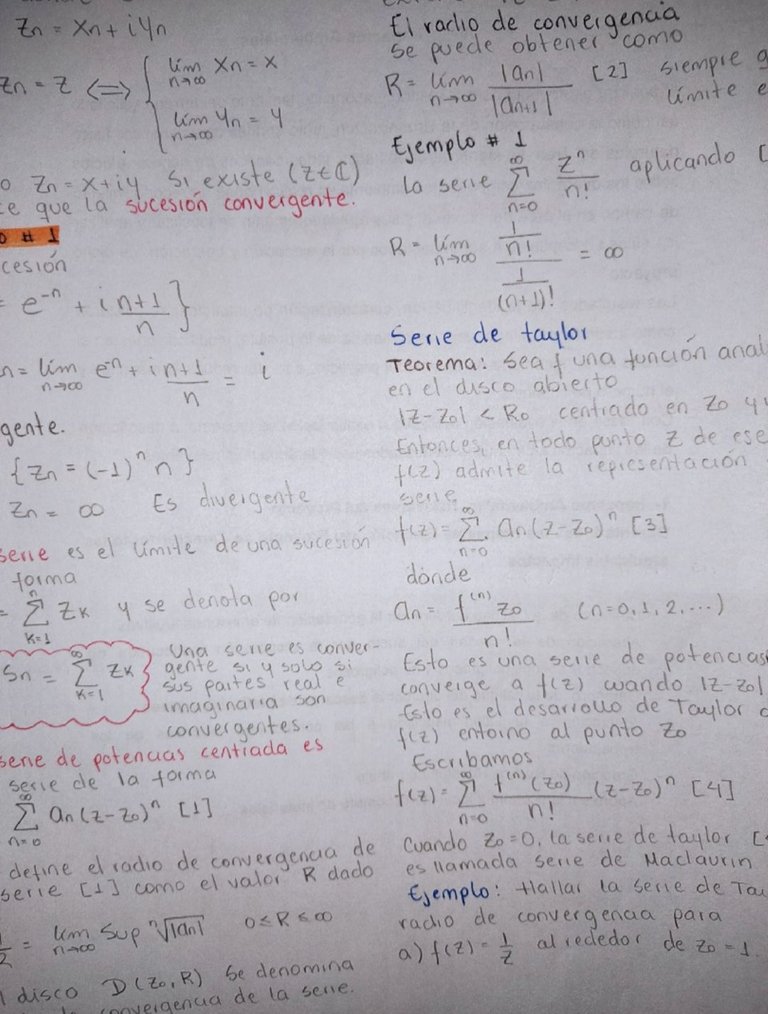 Zn = Xn + iYn
Zn = Z ⟺ { lím n→∞ Xn = X
lím n→∞ Yn = Y
Zn = x + iy Si existe (z ∈ ℂ)
que la sucesión convergente.
# 1
cesión
= e^-n + i n+1/n }
n = lím n→∞ e^-n + i n+1/n = i
gente.
{Zn = (-1)^n n}
Zn = ∞ Es divergente
serie es el límite de una sucesión
forma
= Σ k=1 n Zk y se denota por
Sn = Σ k=1 ∞ Zk
Una serie es conver-
gente si y solo si
sus partes real e
imaginaria son
convergentes.
serie de potencias centrada es
serie de la forma
Σ n=0 ∞ an (z-zo)^n [1]
define el radio de convergencia de
serie [1] como el valor R dado
= lím n→∞ Sup ⁿ√|an| 0 ≤ R ≤ ∞
disco D(zo, R) Se denomina
convergencia de la serie.
El radio de convergencia
se puede obtener como
R = lím n→∞ |an| / |an+1| [2] siempre
límite
Ejemplo # 1
La serie Σ n=0 ∞ z^n / n! aplicando [
R = lím n→∞ (1/n!) / (1/(n+1)!) = ∞
Serie de taylor
Teorema: Sea f una función anal
en el disco abierto
|z-zo| < Ro centrado en zo y
Entonces, en todo punto z de ese
f(z) admite la representación
serie
f(z) = Σ n=0 ∞ an (z-zo)^n [3]
dónde
an = f^(n) zo / n! (n=0, 1, 2, ...)
Esto es una serie de potencias
converge a f(z) cuando |z-zo|
Esto es el desarrollo de Taylor
f(z) entorno al punto zo
Escribamos
f(z) = Σ n=0 ∞ f^(n) (zo) / n! (z-zo)^n [4]
Cuando zo = 0, la serie de taylor [
es llamada serie de Maclaurin
Ejemplo: Hallar la serie de Tay
radio de convergencia para
a) f(z) = 1/z alrededor de zo = 1.